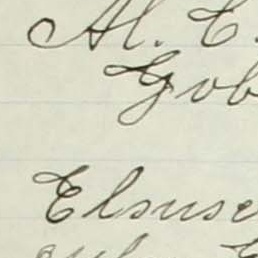 Al. C.
Gob
Elsuse